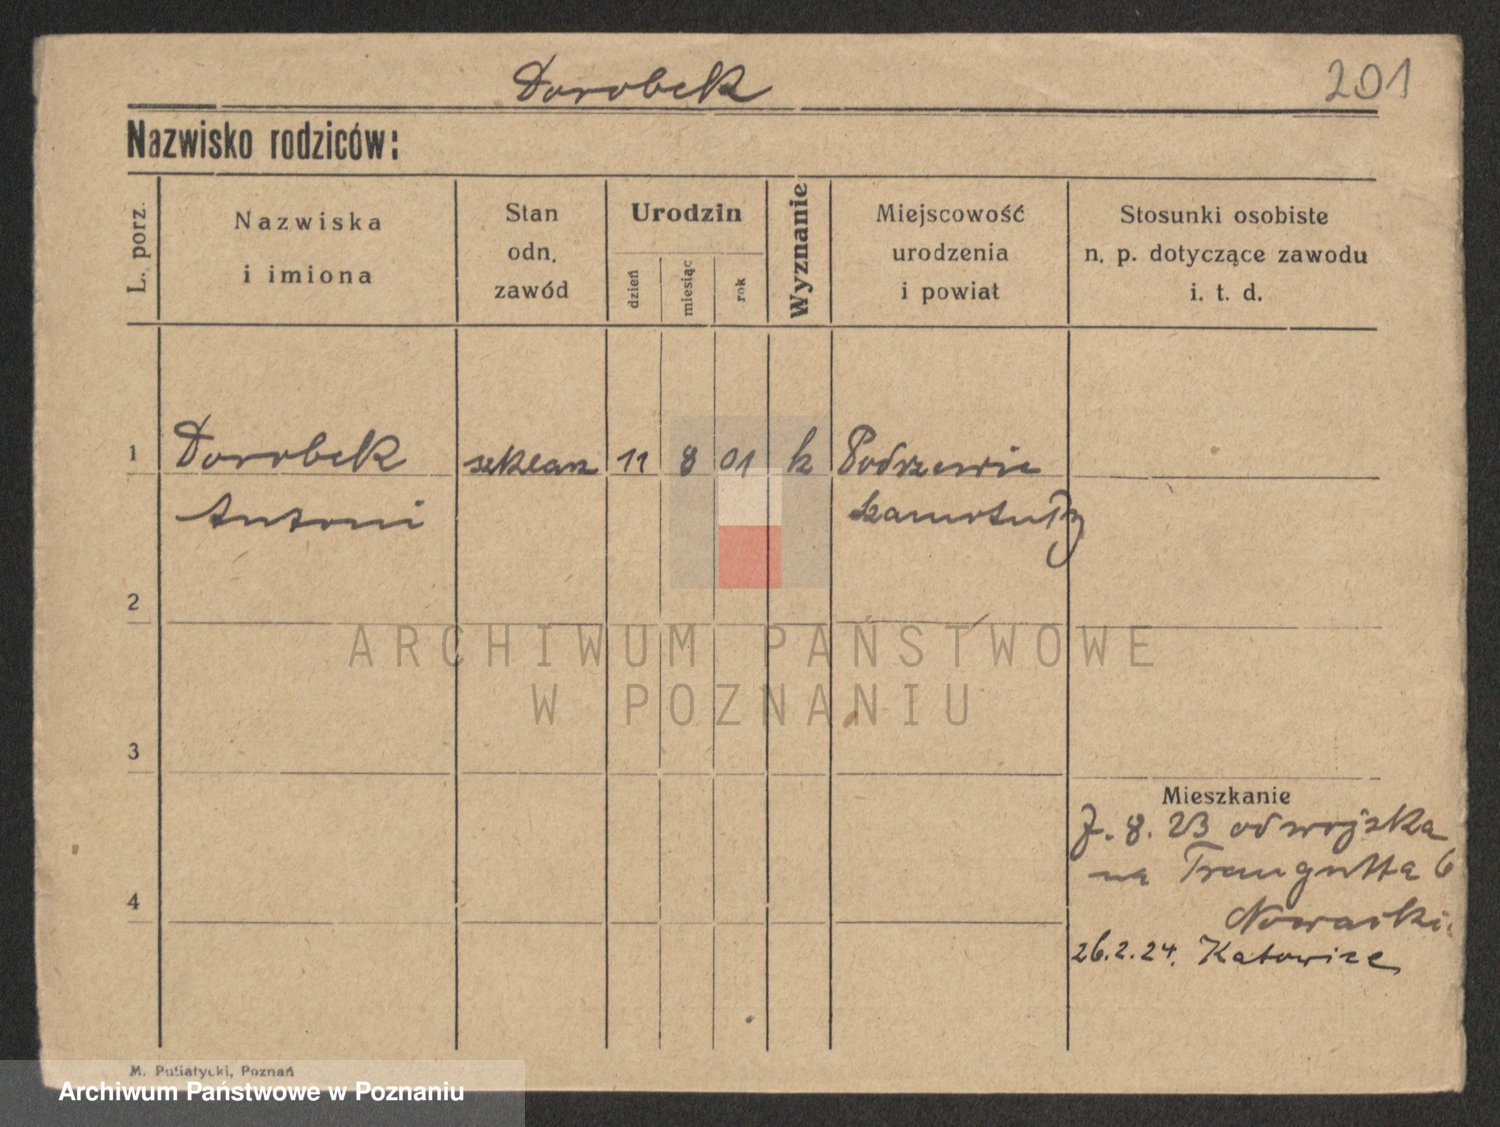 Dorobek
201
Nazwisko rodziców:
L. porz.
Nazwiska
i imiona
Stan
odn.
zawód
Urodzin
dzień
miesiąc
rok
Wyznanie
Miejscowość
urodzenia
i powiat
Stosunki osobiste
n. p. dotyczące zawodu
i. t. d.
1 Dorobek szklarz 11 8 01 k Podrzewie
Antoni
2
ARCHIWUM PAŃSTWOWE
W POZNANIU
3
Mieszkanie
7. 8. 23 od wojska
na Traugutta 6
4
Nowacki
26.2.24. Katowice
M. Putiatycki, Poznań
Archiwum Państwowe w Poznaniu